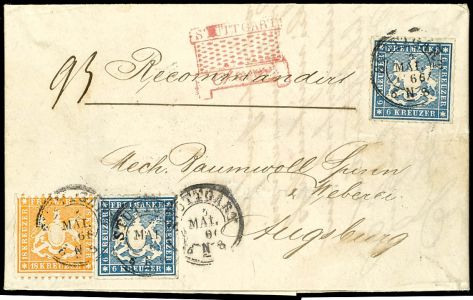 STUTTGART
93 Recommandirt
FREIMARKE
6 KREUZER
MAI
66
6 N 8
Mech. Baumwoll Spinn
& Weberei
Augsburg
FREIMARKE
18 KREUZER
FREIMARKE
6 KREUZER
MAI
MAI
STUTTGART
5
MAI